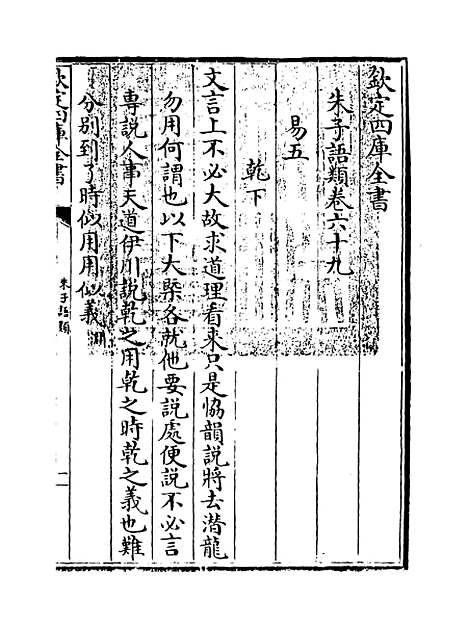 欽定四庫全書
朱子語類卷六十九
易五
乾下
文言上不必大故求道理看来只是恊韻説將去潛龍
勿用何謂也以下大槩各就他要説處便説不必言
專説人事天道伊川説乾之用乾之時乾之義也難
分别到了時似用用似義淵
欽定四庫全書
朱子語類